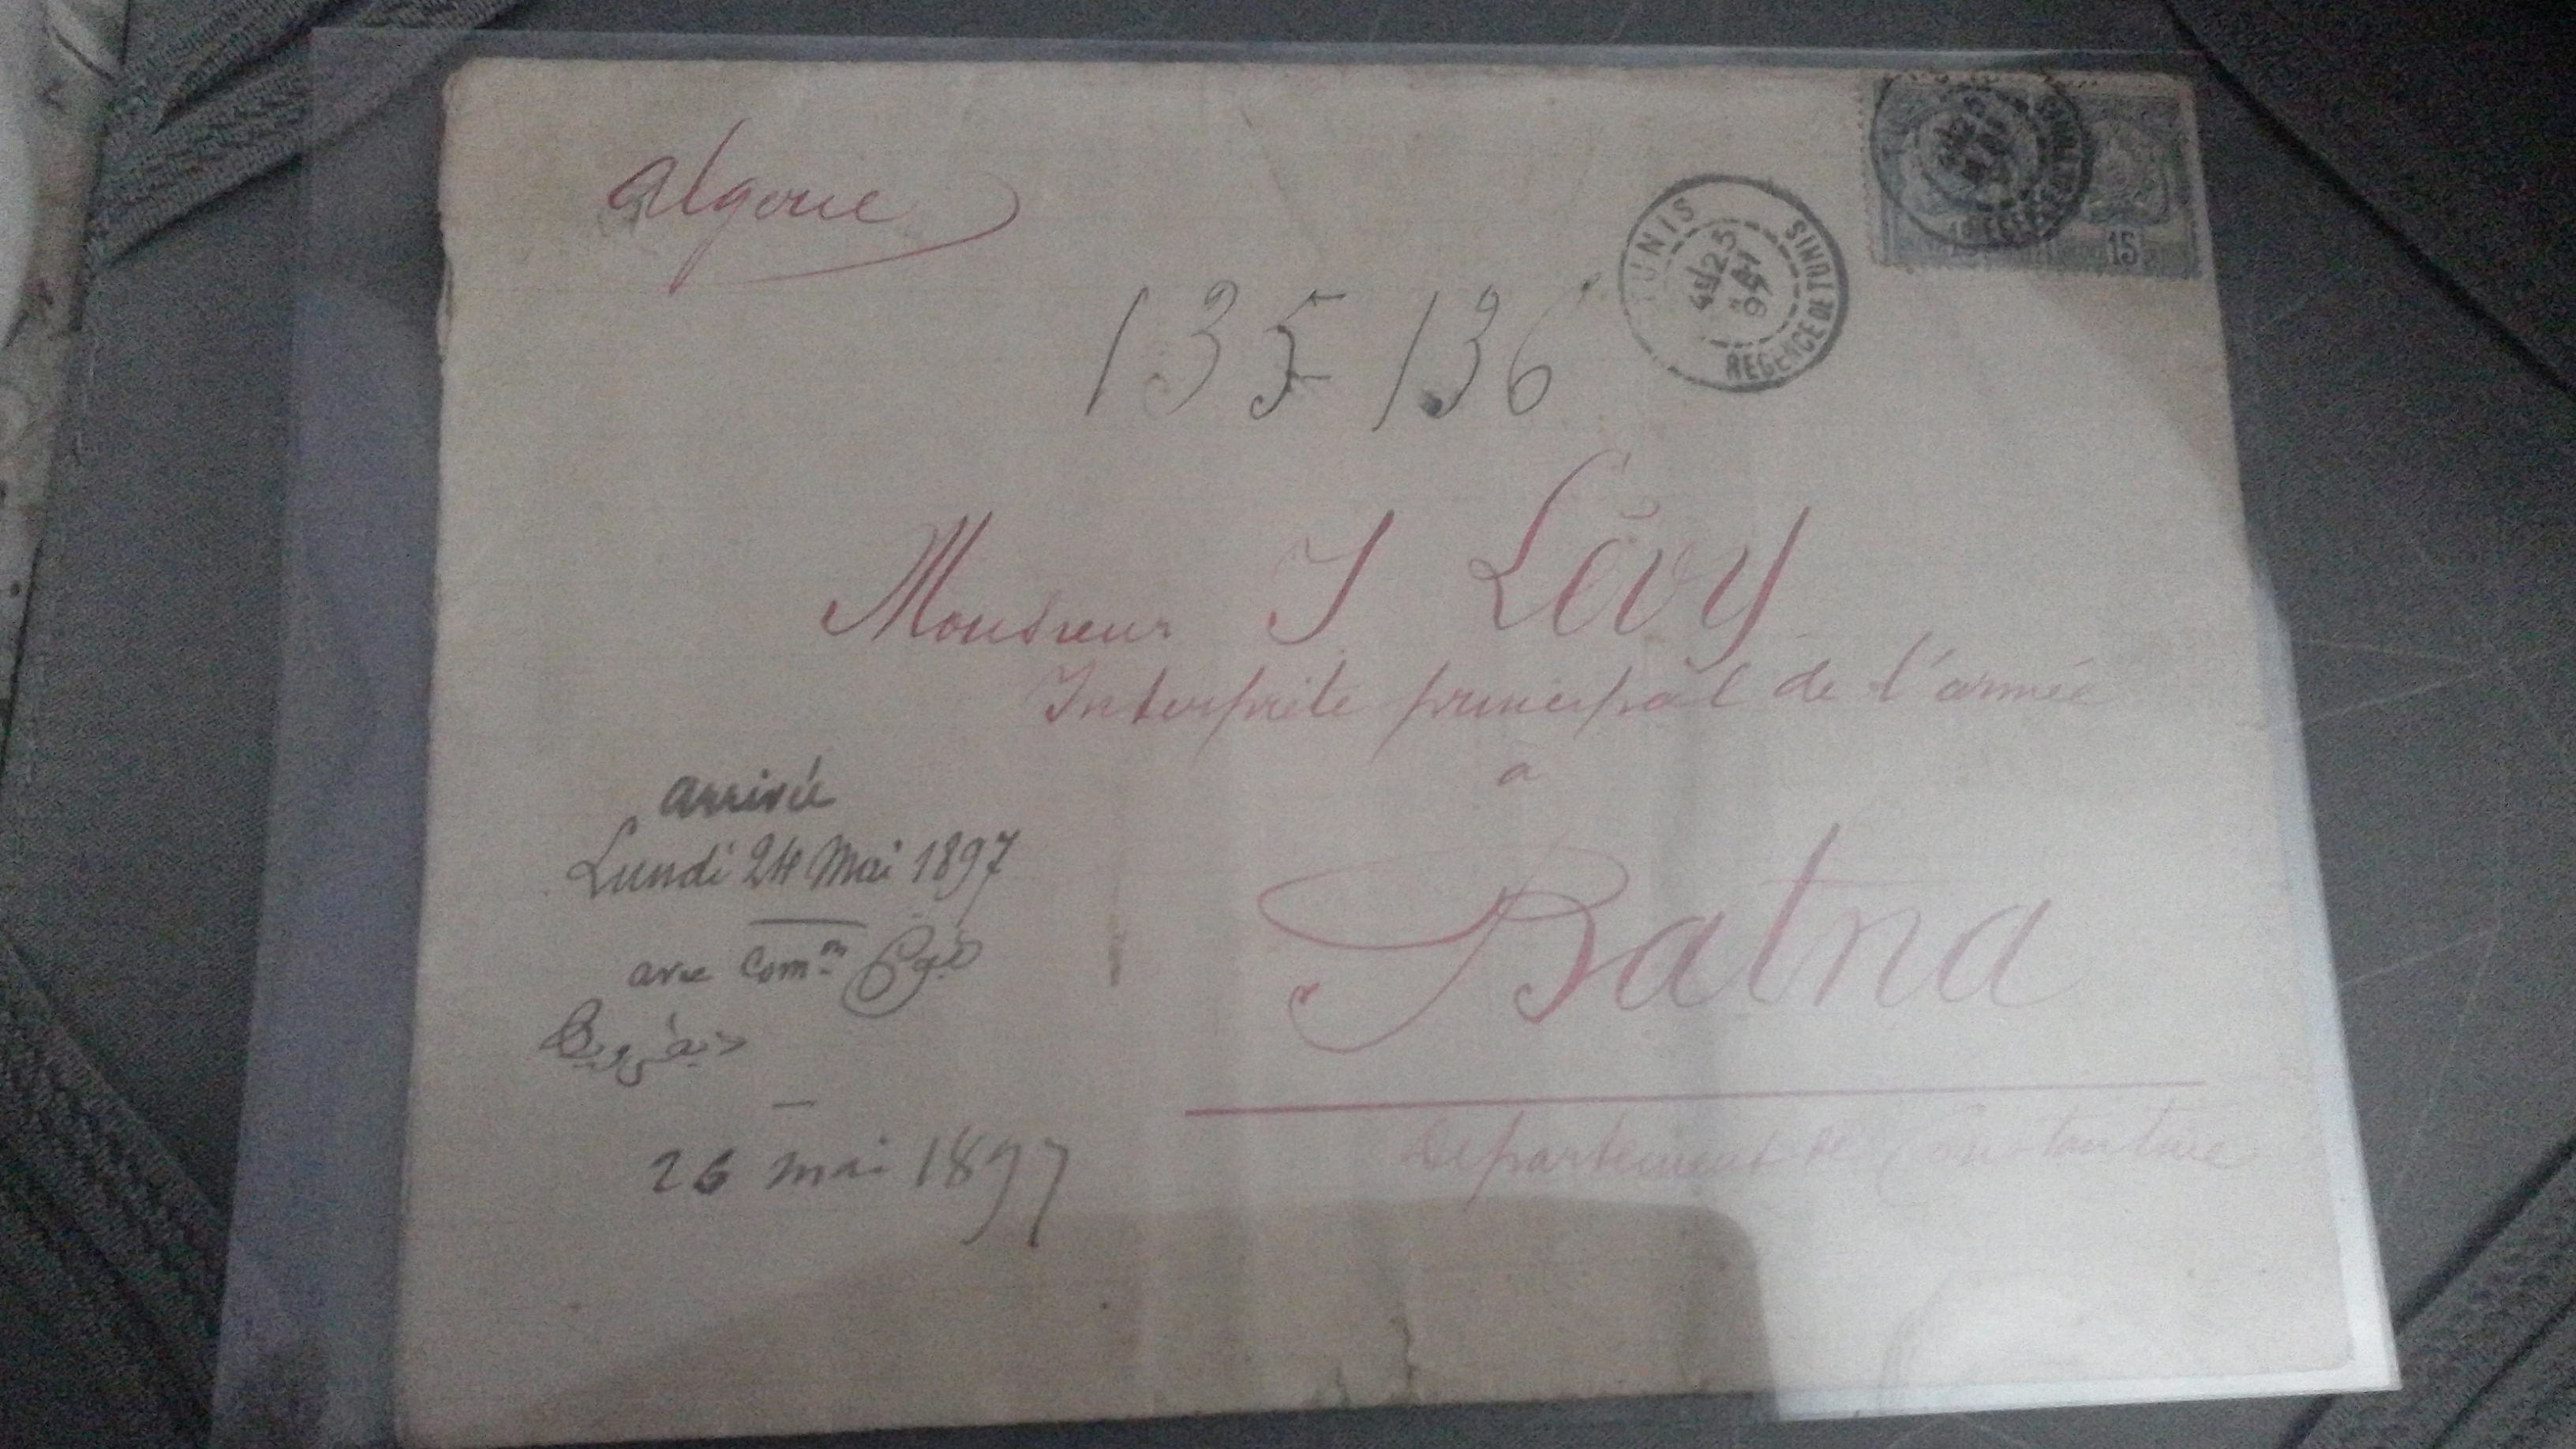 Algérie
135 136
TUNIS
REGENCE DE TUNIS
4E/23
MAI
97
15
Monsieur J Lévy
Interprète principal de l'armée
à
Batna
Département de Constantine
arrivée
Lundi 24 Mai 1897
avec Comm^on
26 mai 1897